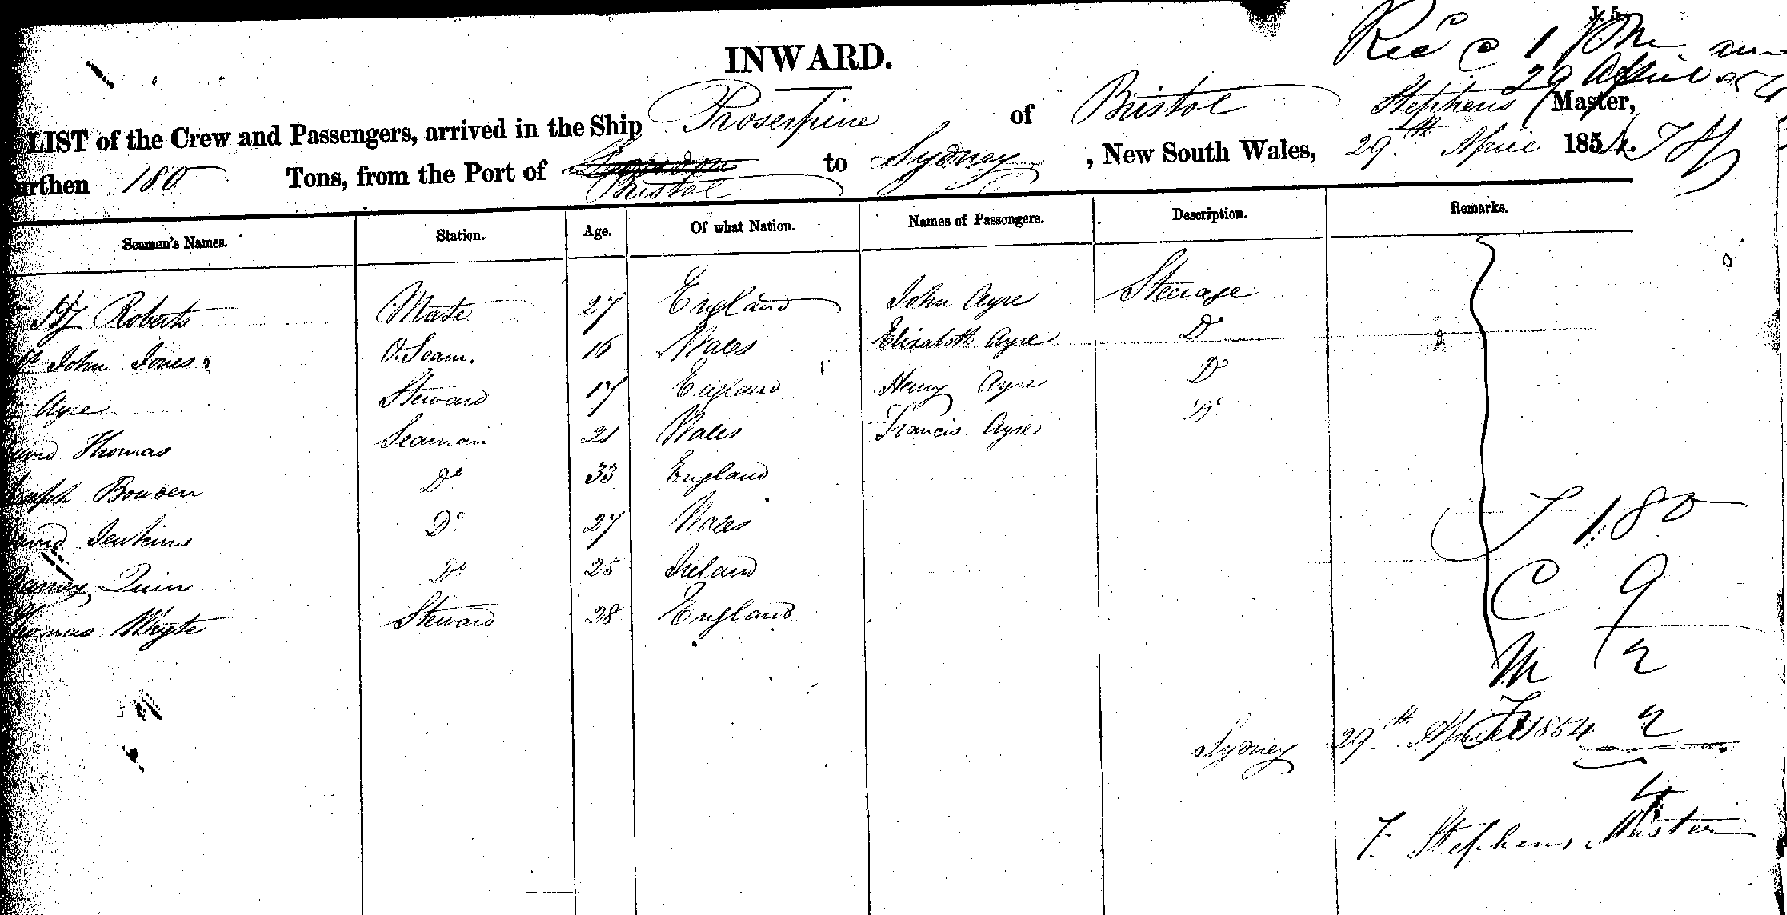 INWARD.
Rec'd C 1 Pm
29 April 54
LIST of the Crew and Passengers, arrived in the Ship Proserpine of Bristol Stephens Master,
urthen 180 Tons, from the Port of London Bristol to Sydney, New South Wales, 29th April 1854.
Seamen's Names. Station. Age. Of what Nation. Names of Passengers. Description. Remarks.
Hy Roberts Mate 27 England John Ayre Steerage
John Jones O. Seam. 16 Wales Elizabeth Ayre Do
Ayre Steward 17 England Henry Ayre Do
Thomas Seaman 21 Wales Francis Ayre Do
Bowden Do 33 England
Jenkins Do 27 Wales
Quinn Do 25 Ireland
Thomas Whyte Steward 38 England
T 180
C 9
M 2
F 2
4
Sydney 29th April 1854
F. Stephens Master